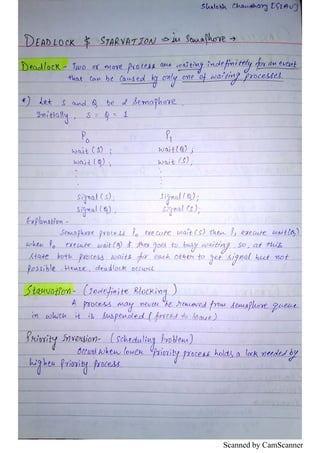 Shilokh Choudhary [SLAU]
DEADLOCK & STARVATION → in Semaphore →
Deadlock - Two or more process are waiting indefinitely for an event
that can be caused by only one of waiting processes
*) Let S and Q be 2 semaphore.
Initially, S = Q = 1
P0 P1
wait (S) ; wait (Q) ;
wait (Q) ; wait (S) ;
. .
. .
. .
signal (S) ; signal (Q) ;
signal (Q) ; signal (S) ;
Explanation -
Semaphore process P0 execute wait (S) then P1 execute wait (Q)
when P0 execute wait (Q) & then goes to busy waiting so, at this
state both process waits for each other to get signal but not
possible. Hence, deadlock occurs
Starvation - (Indefinite Blocking)
A process may never be removed from semaphore queue
in which it is suspended (forced to leave)
Priority Inversion - (Scheduling Problem)
Occurs when lower priority process holds a lock needed by
higher Priority process.
Scanned by CamScanner